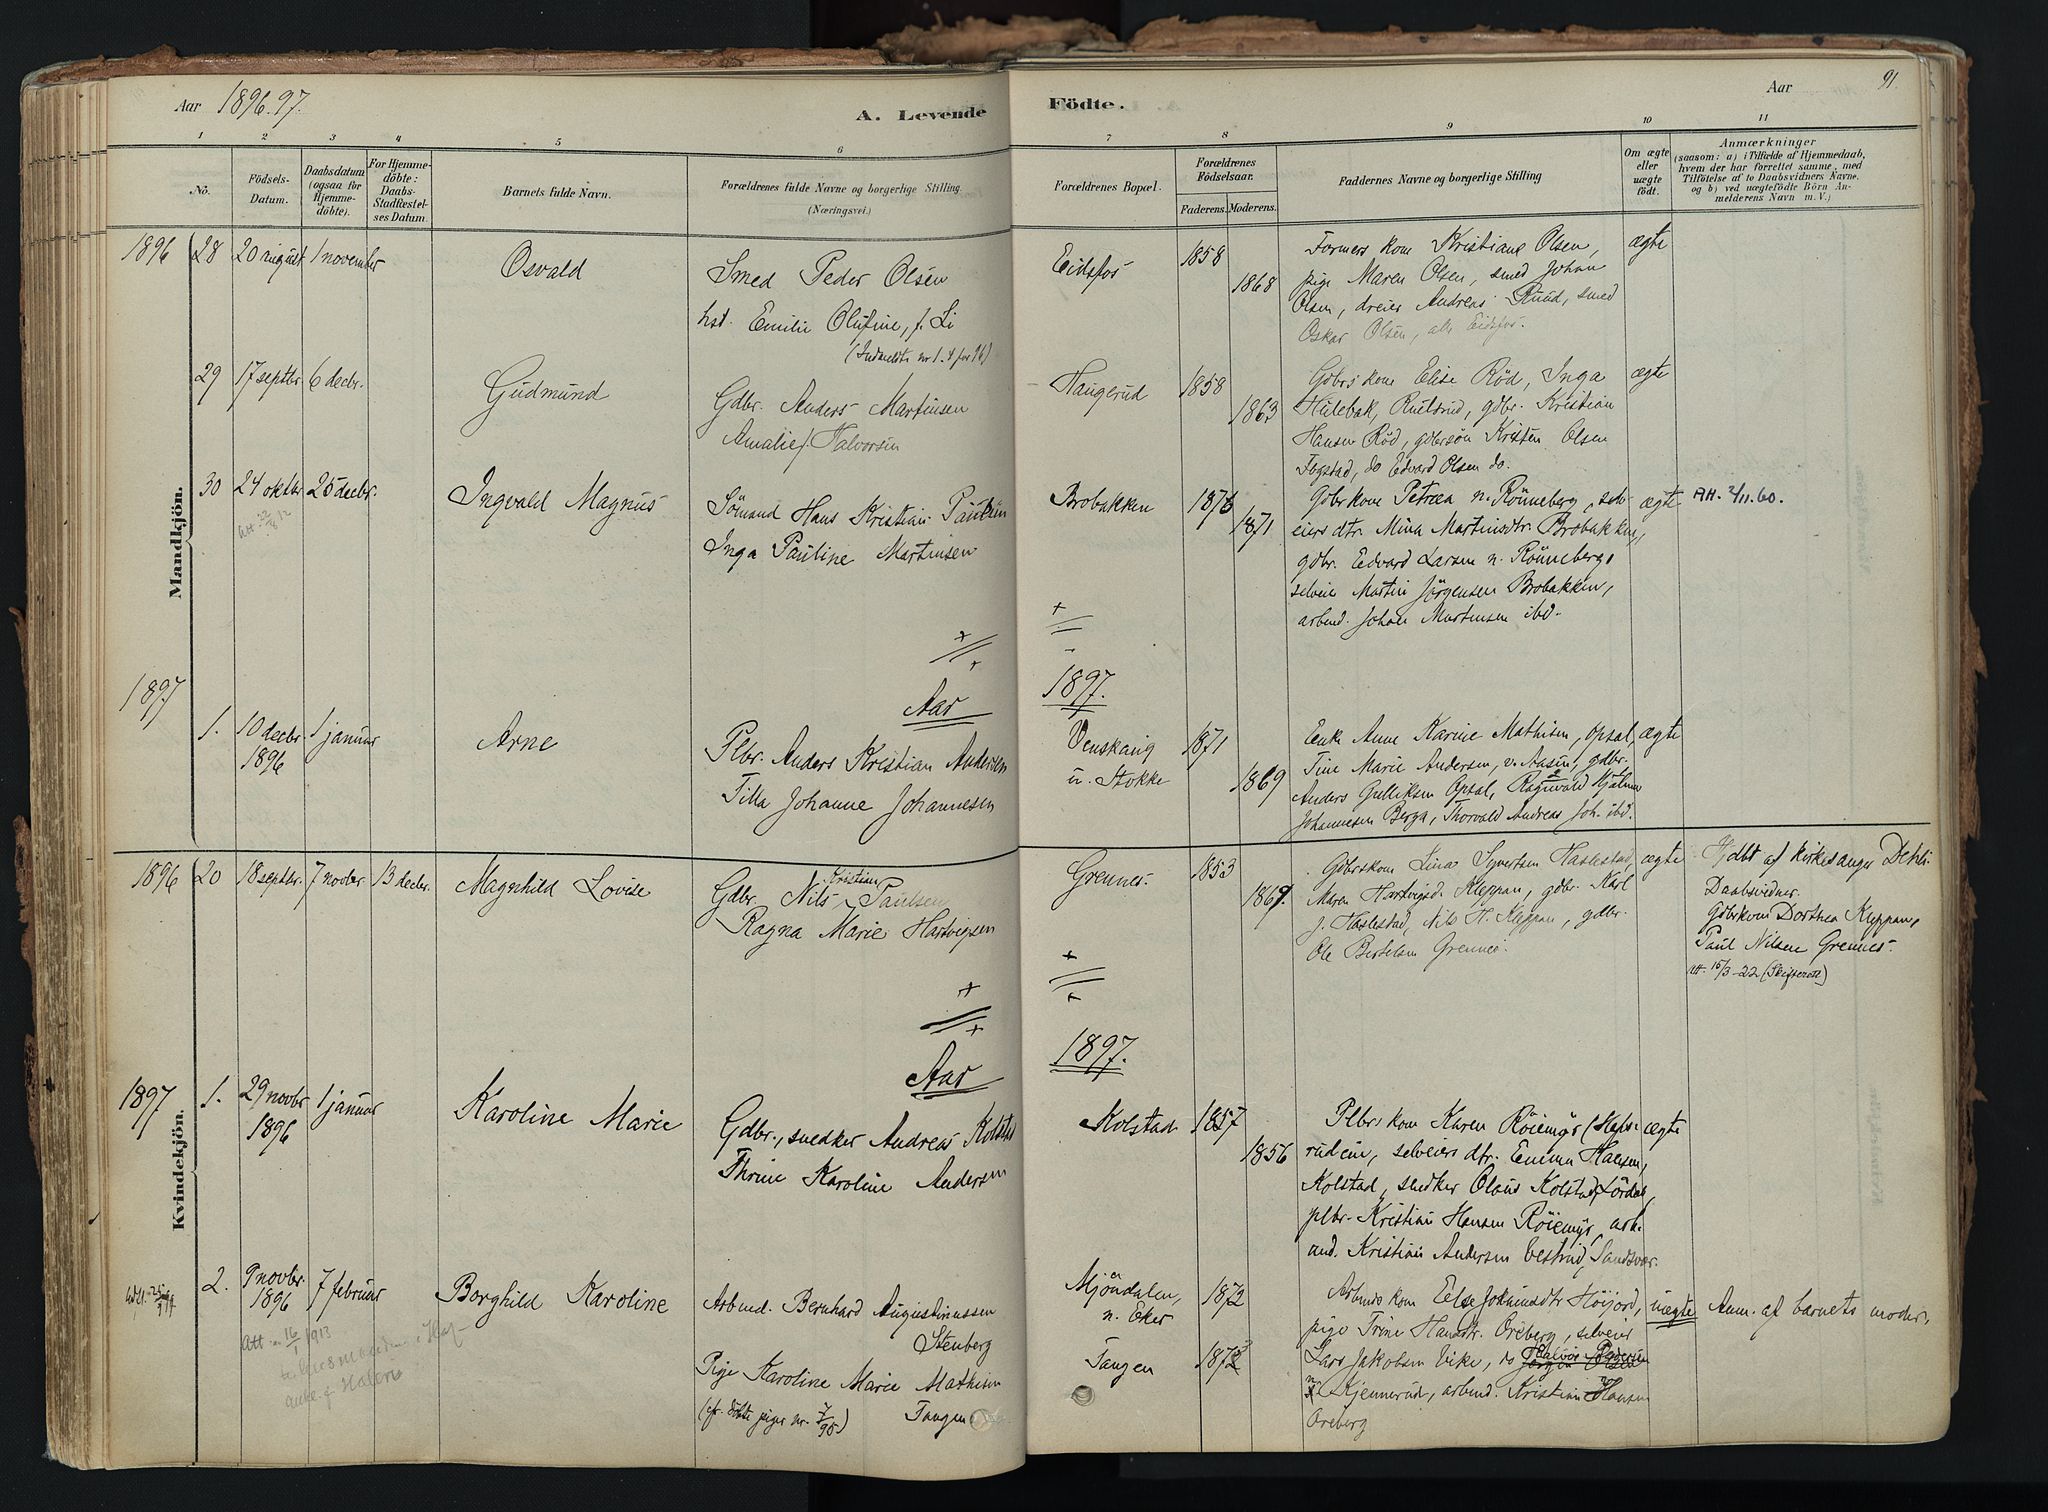 Aar 1896.97.
A. Levende
Födte.
Aar
91.
1 2 3 4 5 6 7 8 9 10 11
No.
Födsels-
Datum.
Daabsdatum
(ogsaa for
Hjemme-
döbte).
For Hjemme-
döbte:
Daabs-
Stadfæstel-
ses Datum.
Barnets fulde Navn.
Forældrenes fulde Navne og borgerlige Stilling.
(Næringsvei.)
Forældrenes Bopæl.
Forældrenes
Födselsaar.
Faderens. Moderens.
Faddernes Navne og borgerlige Stilling
Om ægte
eller
uægte
födt.
Anmærkninger
(saasom: a) i Tilfælde af Hjemmedaab,
hvem der har forrettet samme, med
Tilföielse af to Daabsvidners Navne,
og b) ved uægtefödte Börn An-
melderens Navn m.V.)
Mandkjön.
1896 28 20 august 1 november Osvald
Smed Peder Olsen
hst. Emilie Olufine, f. Li
Eidsfos 1858 1868
Formers kone Kristiane Olsen,
pige Maren Olsen, smed Johan
Olsen, dreier Andreas Ruud, smed
Oskar Olsen, alle Eidsfos.
ægte
29 17 septbr. 6 decbr. Gudmund
Gdbr. Anders Martinsen
Amalie Halvorsen
Haugerud 1858 1863
Gdbrs kone Elise Röd, Inga
Hulebak, gdbr. Kristian
Hansen Röd, gdbrsön Kristen Olsen
Fogstad, do Edvard Olsen do.
ægte
30 24 oktbr 25 decbr. Ingvald Magnus
Sömand Hans Kristian Paulsen
Inga Pauline Martinsen
Brobakken 1871
Gdbrkone Petrea n. Rönneberg, selv-
eiers dtr. Mina Martinsdtr. Brobakken,
gdbr. Edvard Larsen n. Rönneberg,
selveier Martin Jörgensen Brobakken,
arbmd. Johan Martinsen ibd.
ægte
Att. 2/11.60.
1897
Aar 1897.
1. 10 decbr. 1896 1 januar Arne
Plbr. Anders Kristian Andersen
Tilla Johanne Johannesen
u. Stokke
1871 1869
Enke Anne Karine Mathisen, Opsal,
Tine Marie Andersen, v. Aasen, gdbr.
Anders Gulliksen Opsal, Ragnvald Hjalmar
Johannesen Berga, Thorvald Andreas Joh. ibd.
ægte
Kvindekjön.
1896 20 18 septbr. 7 novbr 13 decbr. Magnhild Lovise
Gdbr. Nils Kristian Paulsen
Ragna Marie Hartvigsen
Grennes. 1853
Gdbrskone Lina Syvertsen Haslestad,
Maren Hartvigsd. Kleppan, gdbr. Karl
J. Haslestad, Nils H. Kleppan, gdbr.
Ole Bertelsen Grennes.
ægte
Hjdbt af kirkesanger Dehli
Daabsvidner
Gdbrkone Dorthea Kleppan,
Paul Nilsen Grennes.
Att. 15/3-22 (Skifterett)
Aar 1897.
1897 1. 29 novbr 1896 1 januar Karoline Marie
Gdbr., snedker Andreas Kolstad
Thrine Karoline Andersen
Kolstad 1857 1856
Plbrs kone Karen Röiemyr
selveiers dtr. Emma Hansen,
Kolstad, snedker Olaus Kolstad,
plbr. Kristian Hansen Röiemyr, arb.
Kristian Andersen Sandsvær.
ægte
2. 9 novbr. 1896 7 februar Borghild Karoline
Arbmd. Bernhard Augustinussen
Stenberg
Pige Karoline Marie Mathisen
Tangen
Att. 16/1 1913
Mjöndalen,
n. Eker
Tangen
1872
Arbmds kone Else Johannsdtr Höijord,
pige Trine Hansdtr. Oreberg, selveier
Lars Jakobsen Vike, do
Kjennerud, arbmd. Kristian Hansen
Oreberg
uægte
Anm. af barnets moder.